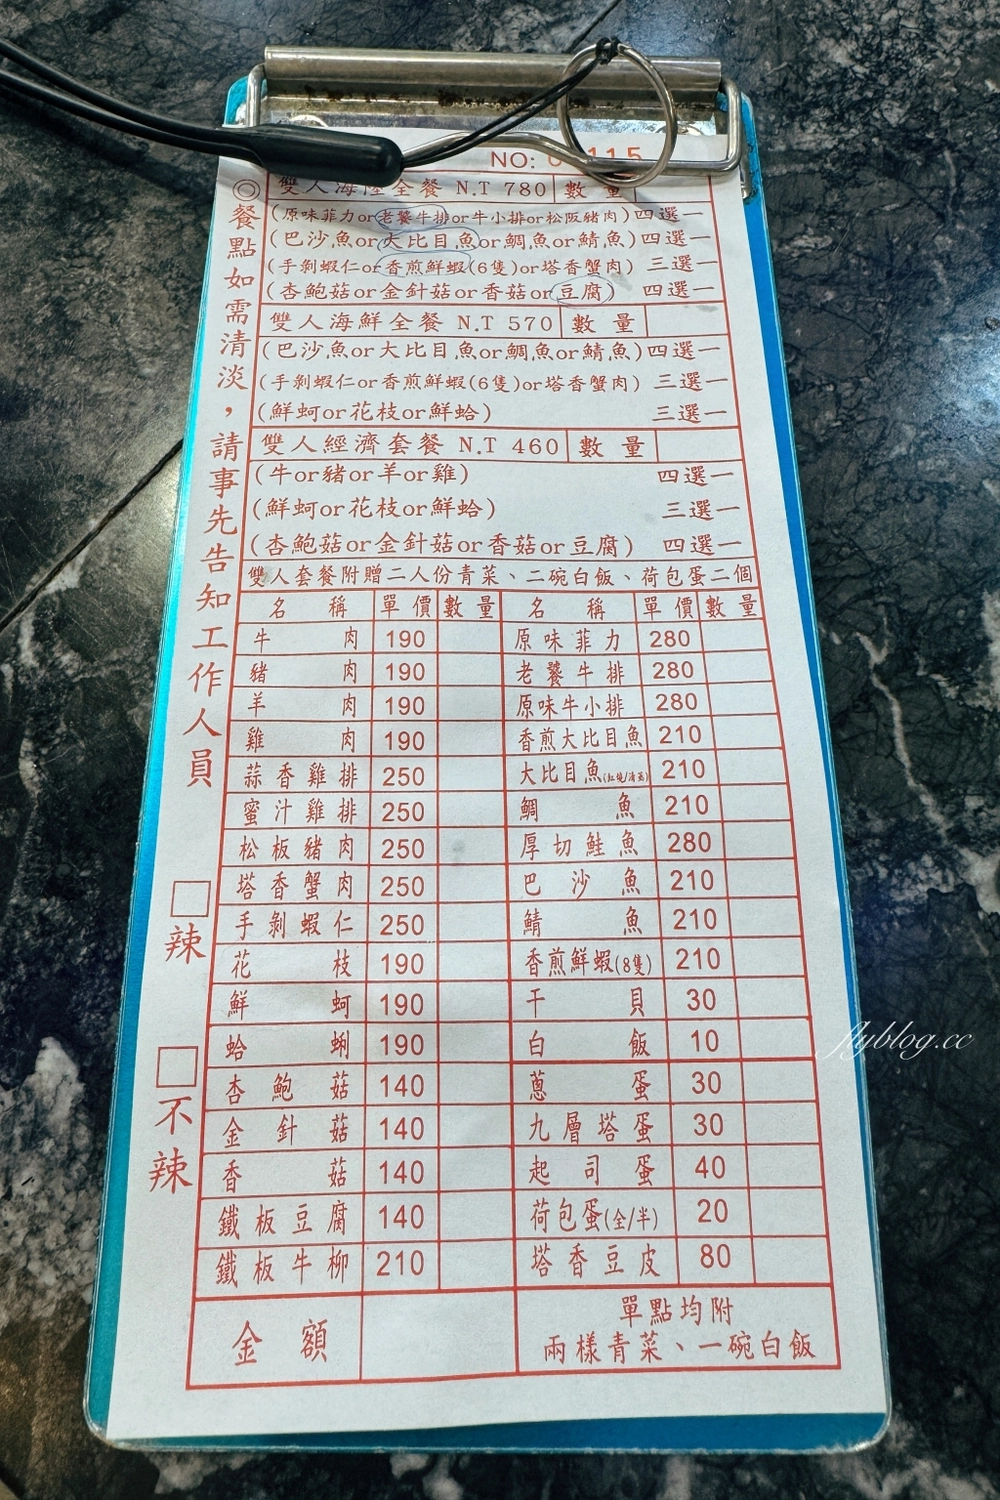 NO: 115
雙人海陸全餐 N.T 780 數量
(原味菲力or老饕牛排or牛小排or松阪豬肉)四選一
(巴沙魚or大比目魚or鯛魚or鯖魚)四選一
(手剝蝦仁or香煎鮮蝦(6隻)or塔香蟹肉) 三選一
(杏鮑菇or金針菇or香菇or豆腐) 四選一
雙人海鮮全餐 N.T 570 數量
(巴沙魚or大比目魚or鯛魚or鯖魚)四選一
(手剝蝦仁or香煎鮮蝦(6隻)or塔香蟹肉) 三選一
(鮮蚵or花枝or鮮蛤) 三選一
雙人經濟套餐 N.T 460 數量
(牛or豬or羊or雞) 四選一
(鮮蚵or花枝or鮮蛤) 三選一
(杏鮑菇or金針菇or香菇or豆腐) 四選一
雙人套餐附贈二人份青菜、二碗白飯、荷包蛋二個
名稱 單價 數量 名稱 單價 數量
牛肉 190 原味菲力 280
豬肉 190 老饕牛排 280
羊肉 190 原味牛小排 280
雞肉 190 香煎大比目魚 210
蒜香雞排 250 大比目魚(紅燒/清蒸) 210
蜜汁雞排 250 鯛魚 210
松板豬肉 250 厚切鮭魚 280
塔香蟹肉 250 巴沙魚 210
手剝蝦仁 250 鯖魚 210
花枝 190 香煎鮮蝦(8隻) 210
鮮蚵 190 干貝 30
蛤蜊 190 白飯 10
杏鮑菇 140 蔥蛋 30
金針菇 140 九層塔蛋 30
香菇 140 起司蛋 40
鐵板豆腐 140 荷包蛋(全/半) 20
鐵板牛柳 210 塔香豆皮 80
金額 單點均附
兩樣青菜、一碗白飯
◎餐點如需清淡，請事先告知工作人員
□辣
□不辣
flyblog.cc